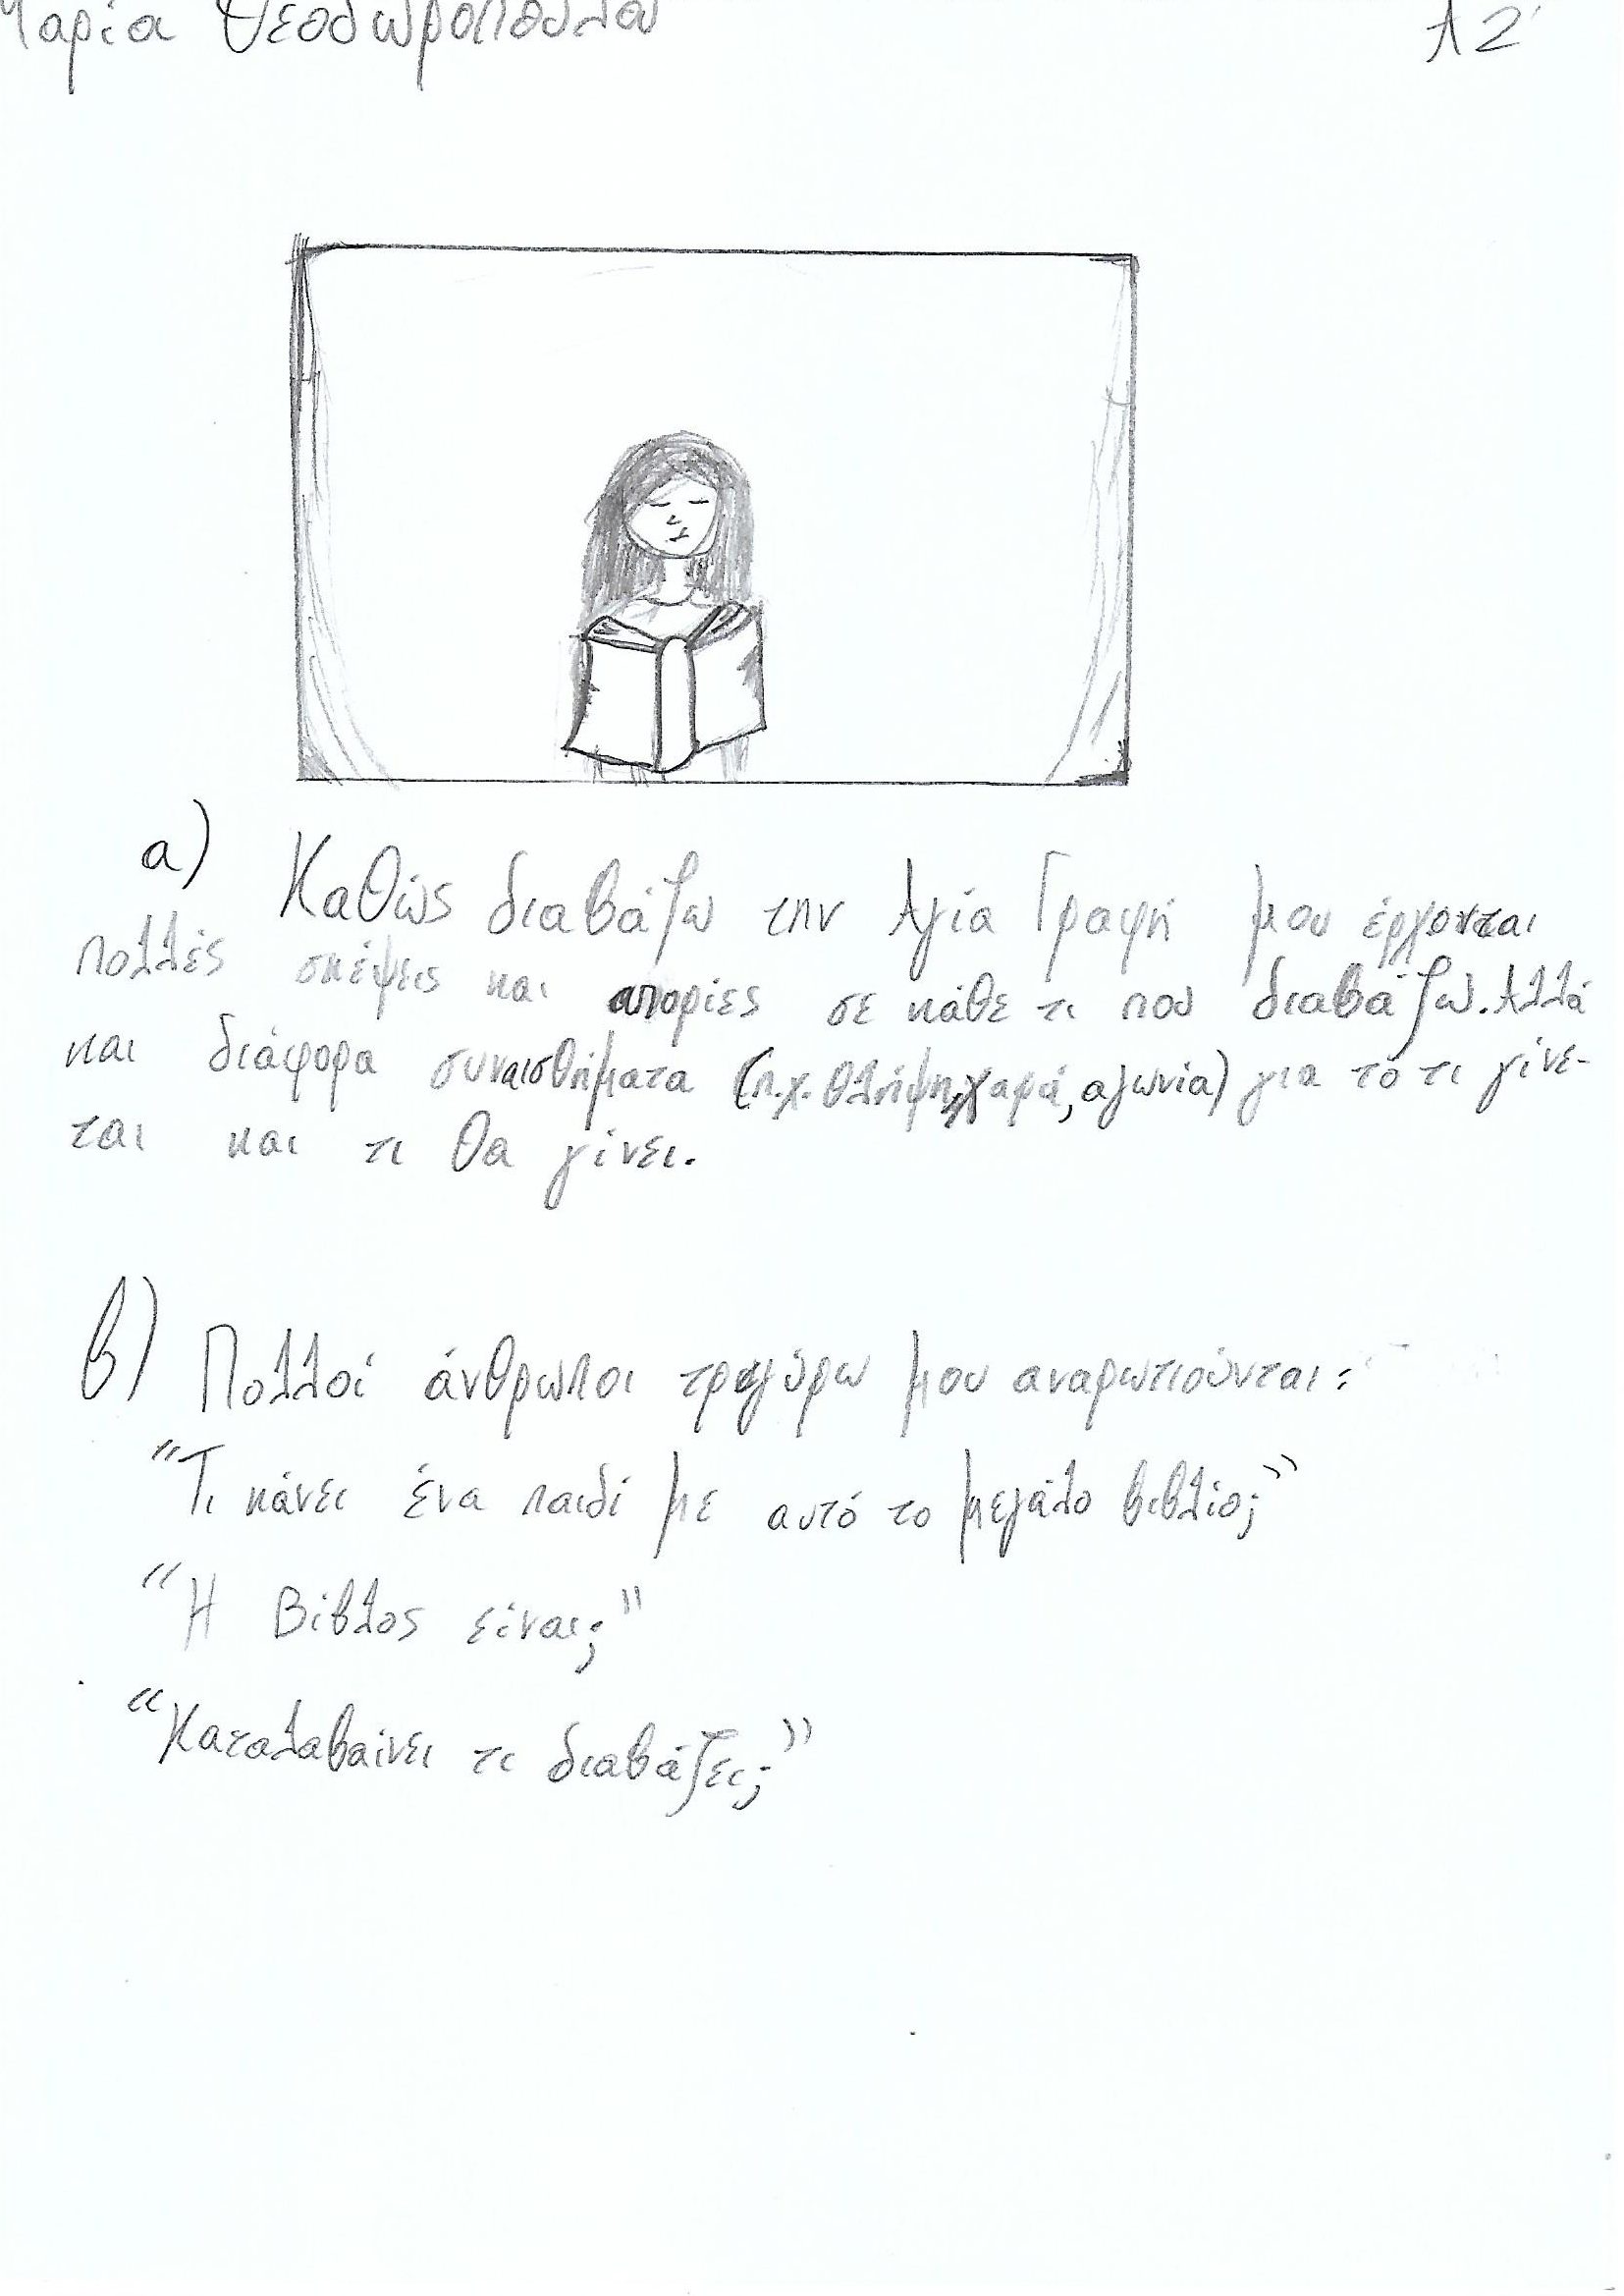 Μαρία Θεοδωροπούλου Α2'
α) Καθώς διαβάζω την Αγία Γραφή μου έρχονται
πολλές σκέψεις και απορίες σε κάθε τι που διαβάζω. Αλλά
και διάφορα συναισθήματα (π.χ. θλήψη, χαρά, αγωνία) για το τι γίνε-
ται και τι θα γίνει.
β) Πολλοί άνθρωποι τργύρω μου αναρωτιούνται:
"Τι κάνει ένα παιδί με αυτό το μεγάλο βιβλίο;"
"Η Βίβλος είναι;"
"Καταλαβαίνει τι διαβάζει;"